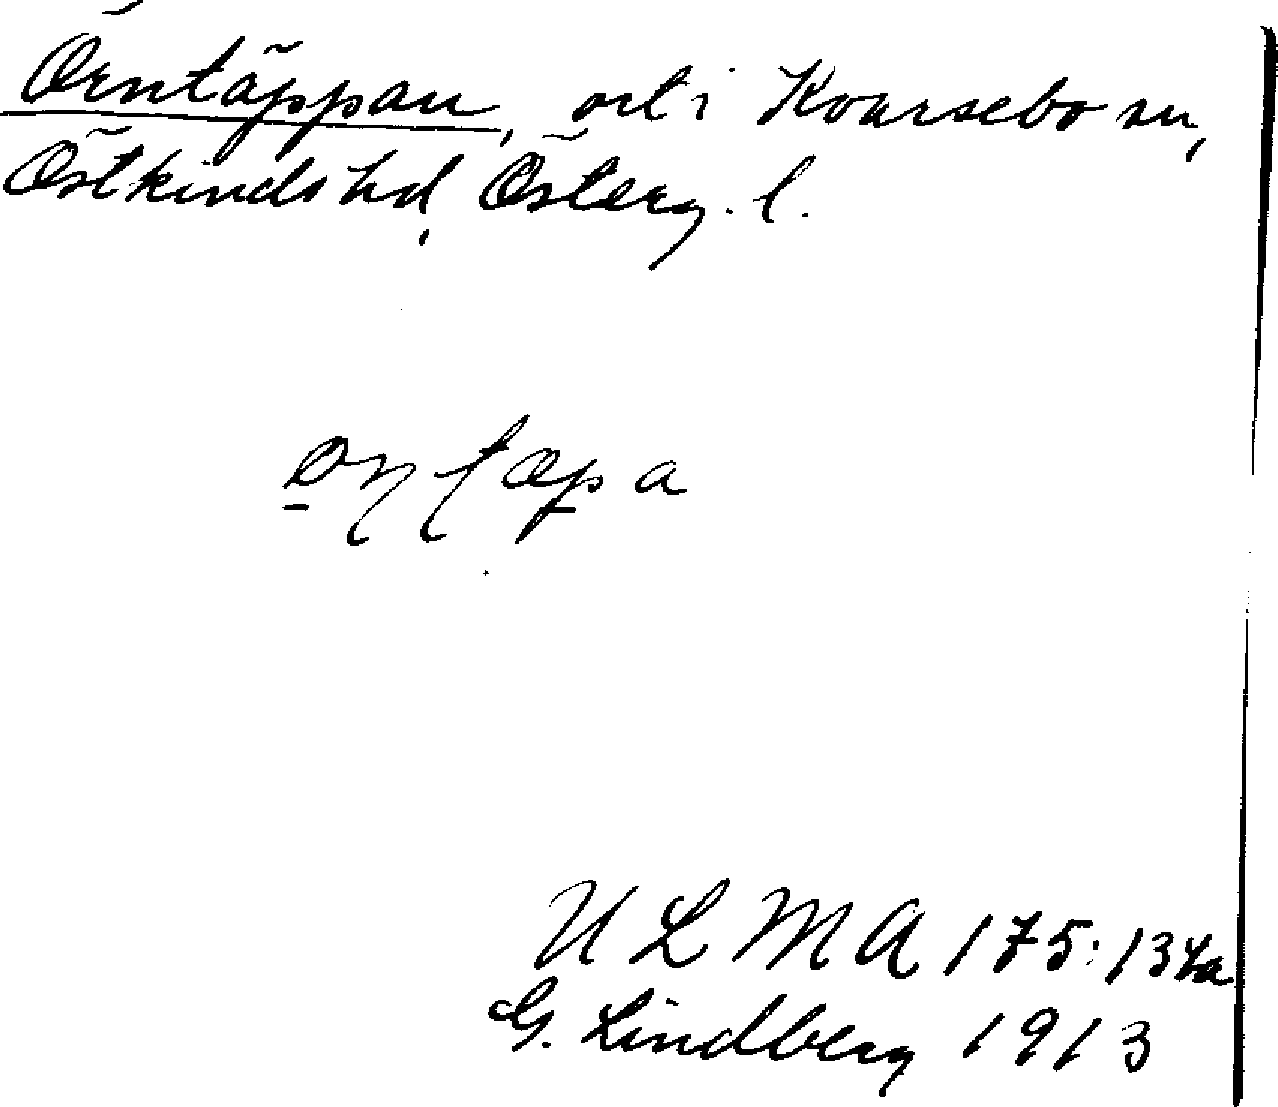 Örntäppan, ort i Kvarsebo sn,
Östkinds hd, Österg. l.
ULMA 175:134a
G. Lindberg 1913